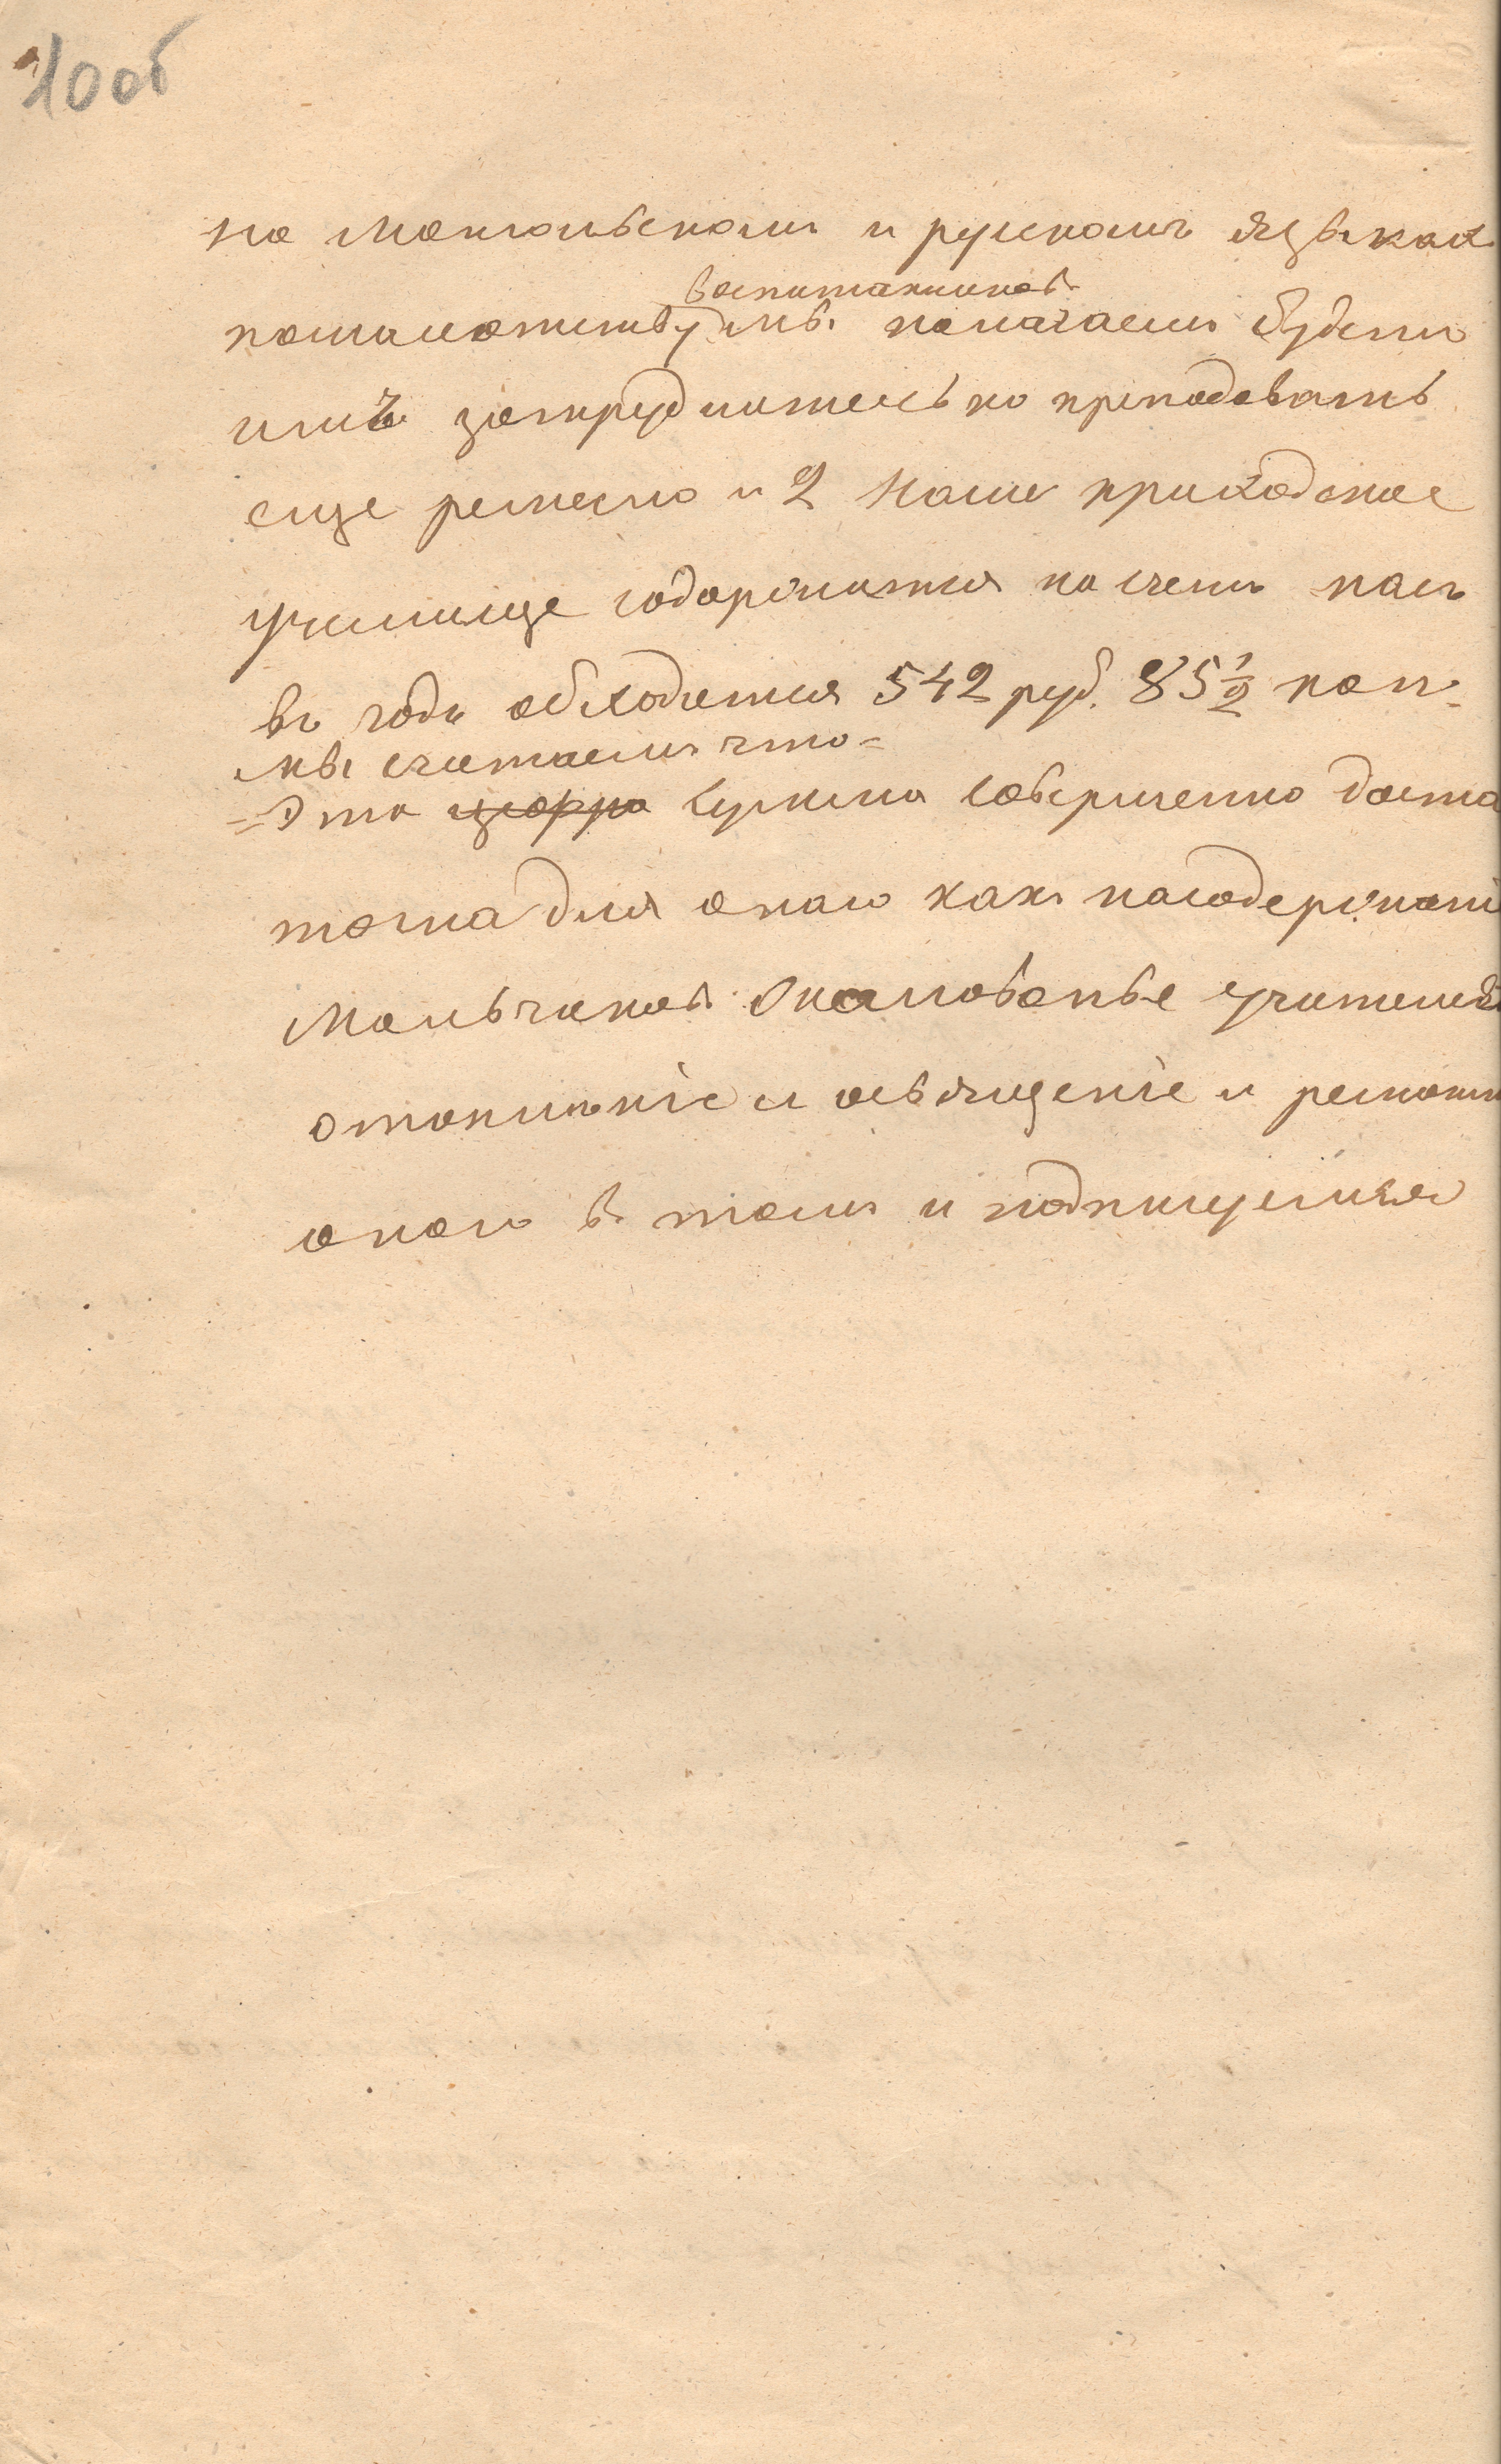 10об
на Монгольскомъ и рускомъ языках
воспитанниковъ
помалолетству мы полагаемъ будетъ
имъ затруднительно преподавать
еще ремесло и 2 Наше приходское
училище содержится на счетъ насъ
въ годъ обходится 542 руб. 85 1/2 коп.
мы считаемъ что=
=Эта цыфра сумма совершенно доста
точна для онаго какъ насодержаніе
Мальчиковъ жалованье учителей
отопленіе и освященіе и ремонтъ
онаго въ томъ и подпишемся